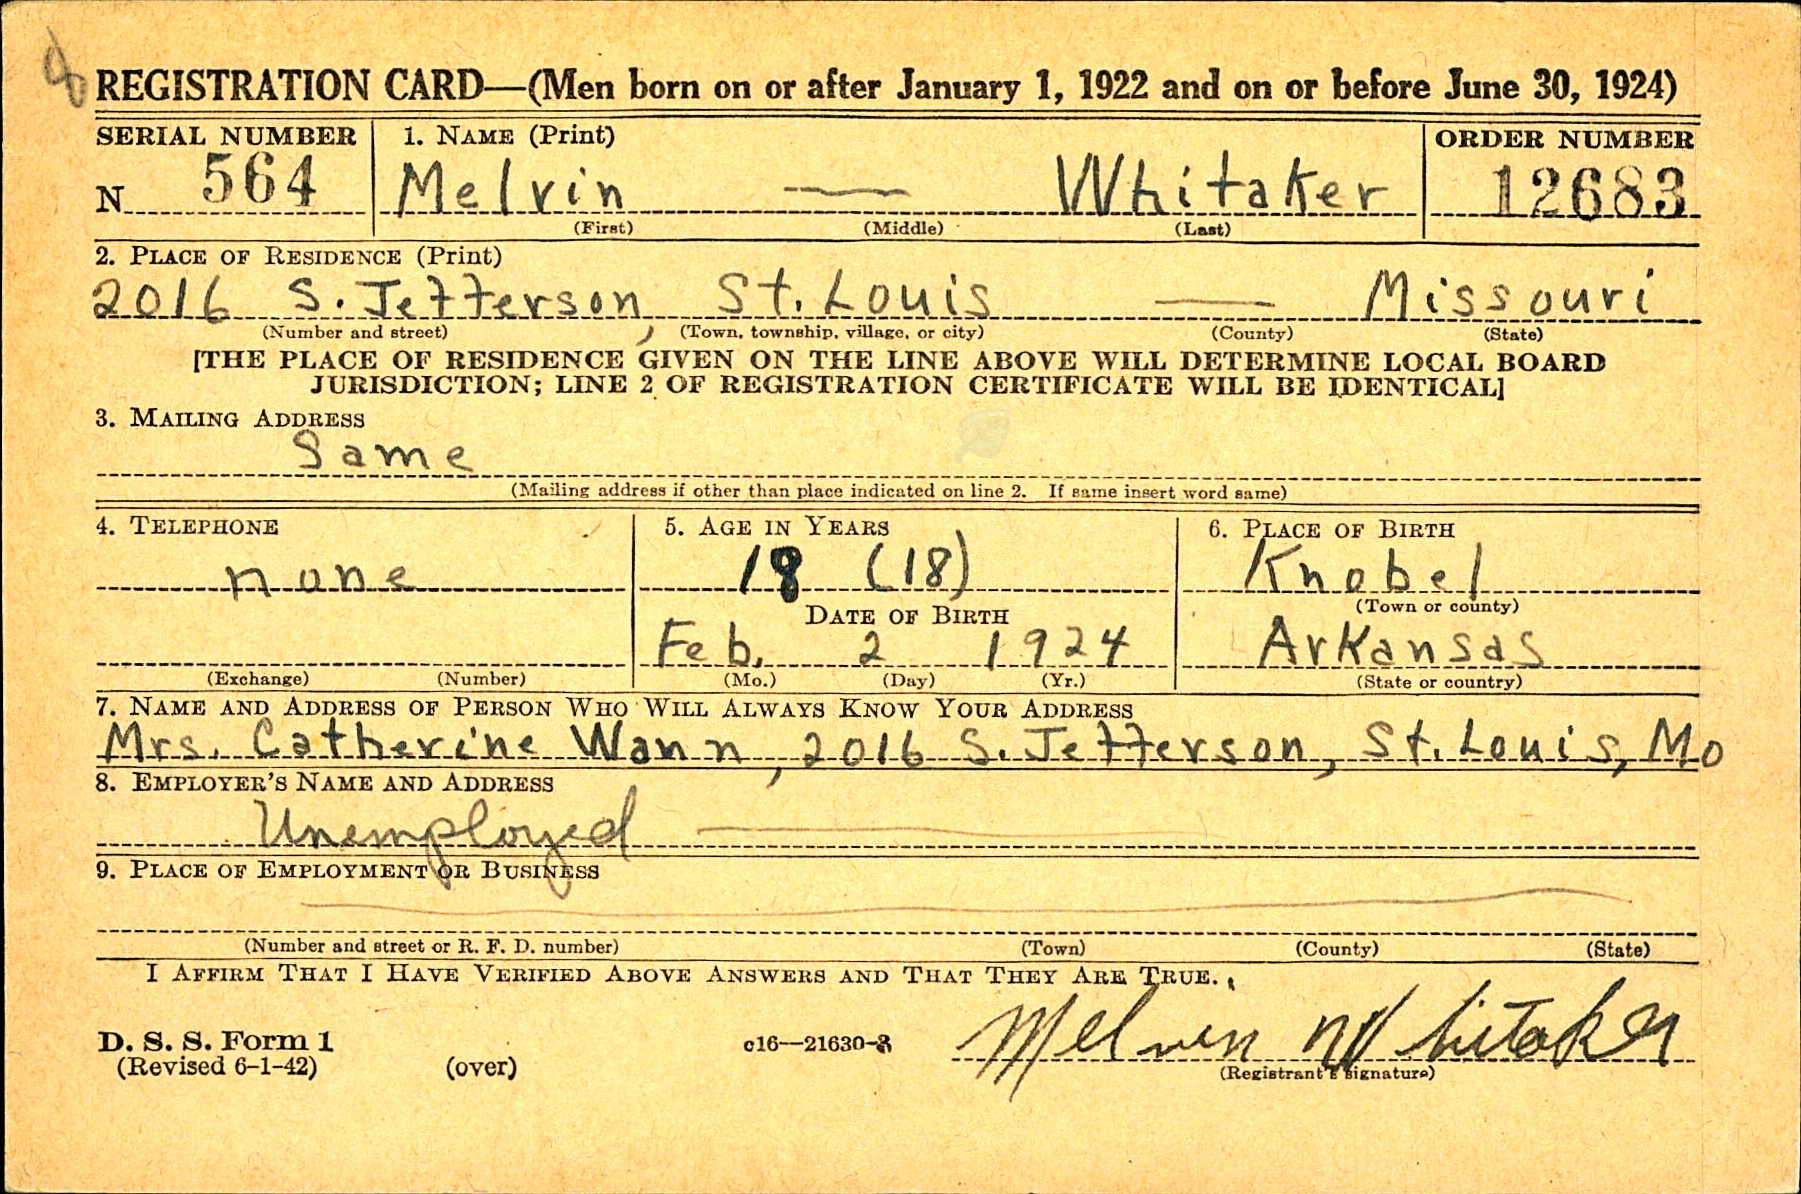 8
REGISTRATION CARD—(Men born on or after January 1, 1922 and on or before June 30, 1924)
SERIAL NUMBER 1. NAME (Print) ORDER NUMBER
N 564 Melvin — Whitaker 12683
(First) (Middle) (Last)
2. PLACE OF RESIDENCE (Print)
2016 S. Jefferson, St. Louis — Missouri
(Number and street) (Town, township, village, or city) (County) (State)
[THE PLACE OF RESIDENCE GIVEN ON THE LINE ABOVE WILL DETERMINE LOCAL BOARD
JURISDICTION; LINE 2 OF REGISTRATION CERTIFICATE WILL BE IDENTICAL]
3. MAILING ADDRESS
Same
(Mailing address if other than place indicated on line 2. If same insert word same)
4. TELEPHONE 5. AGE IN YEARS 6. PLACE OF BIRTH
none 18 (18) Knobel
DATE OF BIRTH (Town or county)
Feb. 2 1924 Arkansas
(Exchange) (Number) (Mo.) (Day) (Yr.) (State or country)
7. NAME AND ADDRESS OF PERSON WHO WILL ALWAYS KNOW YOUR ADDRESS
Mrs. Catherine Wann, 2016 S. Jefferson, St. Louis, Mo
8. EMPLOYER'S NAME AND ADDRESS
Unemployed —
9. PLACE OF EMPLOYMENT OR BUSINESS
(Number and street or R. F. D. number) (Town) (County) (State)
I AFFIRM THAT I HAVE VERIFIED ABOVE ANSWERS AND THAT THEY ARE TRUE.
D. S. S. Form 1 c16—21630-3 Melvin Whitaker
(Revised 6-1-42) (over) (Registrant's signature)